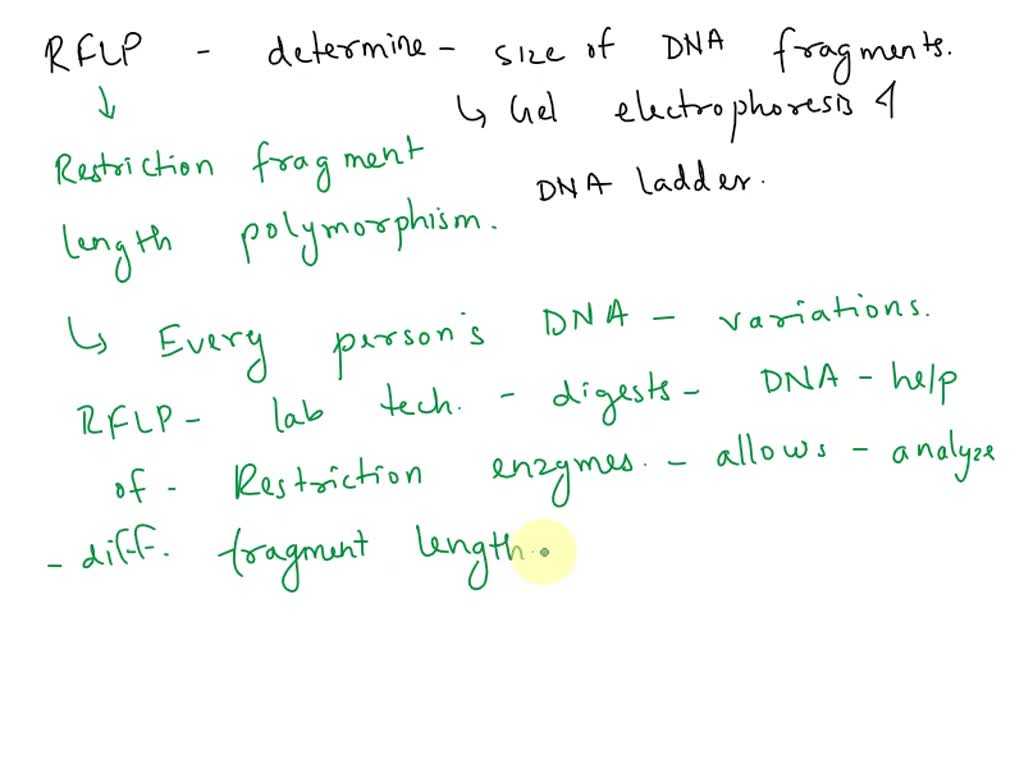 RFLP - determine - size of DNA fragments.
↓ ↳ Gel electrophoresis &
Restriction fragment DNA ladder.
length polymorphism.
↳ Every person's DNA - variations.
RFLP - lab tech. - digests - DNA - help
of - Restriction enzymes. - allows - analyze
- diff. fragment length.